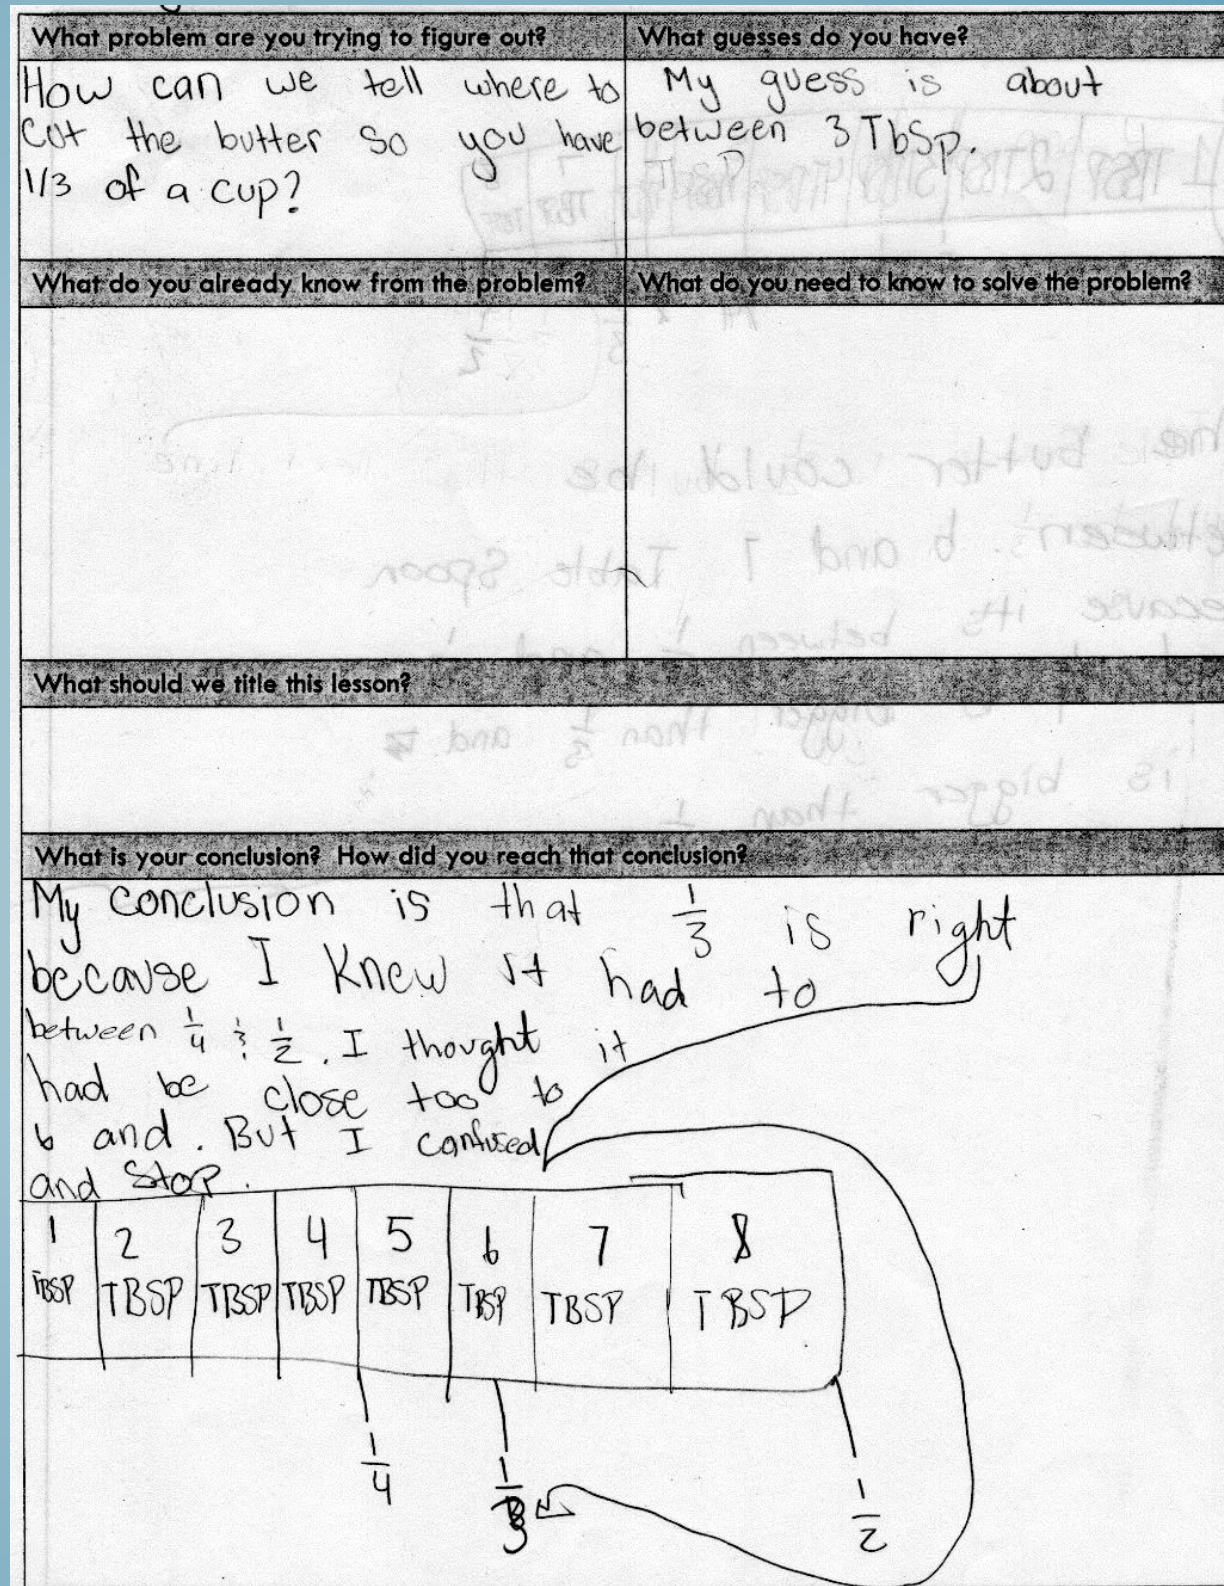 What problem are you trying to figure out?
How can we tell where to
cut the butter so you have
1/3 of a cup?
What guesses do you have?
My guess is about
between 3 Tbsp.
What do you already know from the problem?
What do you need to know to solve the problem?
What should we title this lesson?
What is your conclusion? How did you reach that conclusion?
My conclusion is that 1/3 is right
because I knew it had to
between 1/4 & 1/2. I thought it
had be close too to
6 and. But I confused
and stop.
1 2 3 4 5 6 7 8
TBSP TBSP TBSP TBSP TBSP TBSP TBSP TBSP
1/4 1/3 1/2